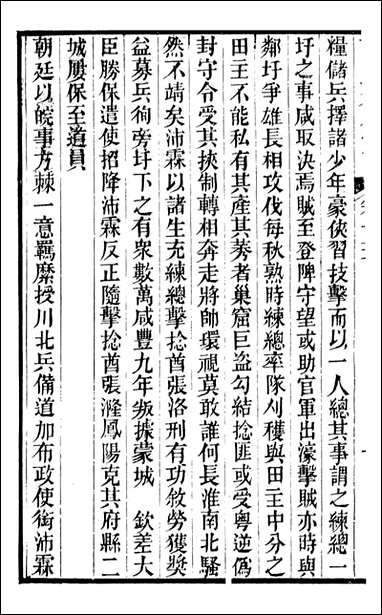 糧儲兵擇諸少年豪俠習技擊而以一人總其事謂之練總一
圩之事咸取決焉賊至登陴守望或助官軍出濠擊賊亦時與
鄰圩爭雄長相攻伐每秋熟時練總率隊刈穫與田主中分之
田主不能私有其產其莠者巢窟巨盜勾結捻匪或受粵逆僞
封守令受其挾制轉相奔走將帥環視莫敢誰何長淮南北騷
然不靖矣沛霖以諸生充練總擊捻酋張洛刑有功敘勞獲獎
益募兵徇旁圩下之有衆數萬咸豐九年叛據蒙城 欽差大
臣勝保遣使招降沛霖反正隨擊捻酋張漋鳳陽克其府縣二
城屢保至道員
朝廷以皖事方棘一意羈縻授川北兵備道加布政使銜沛霖